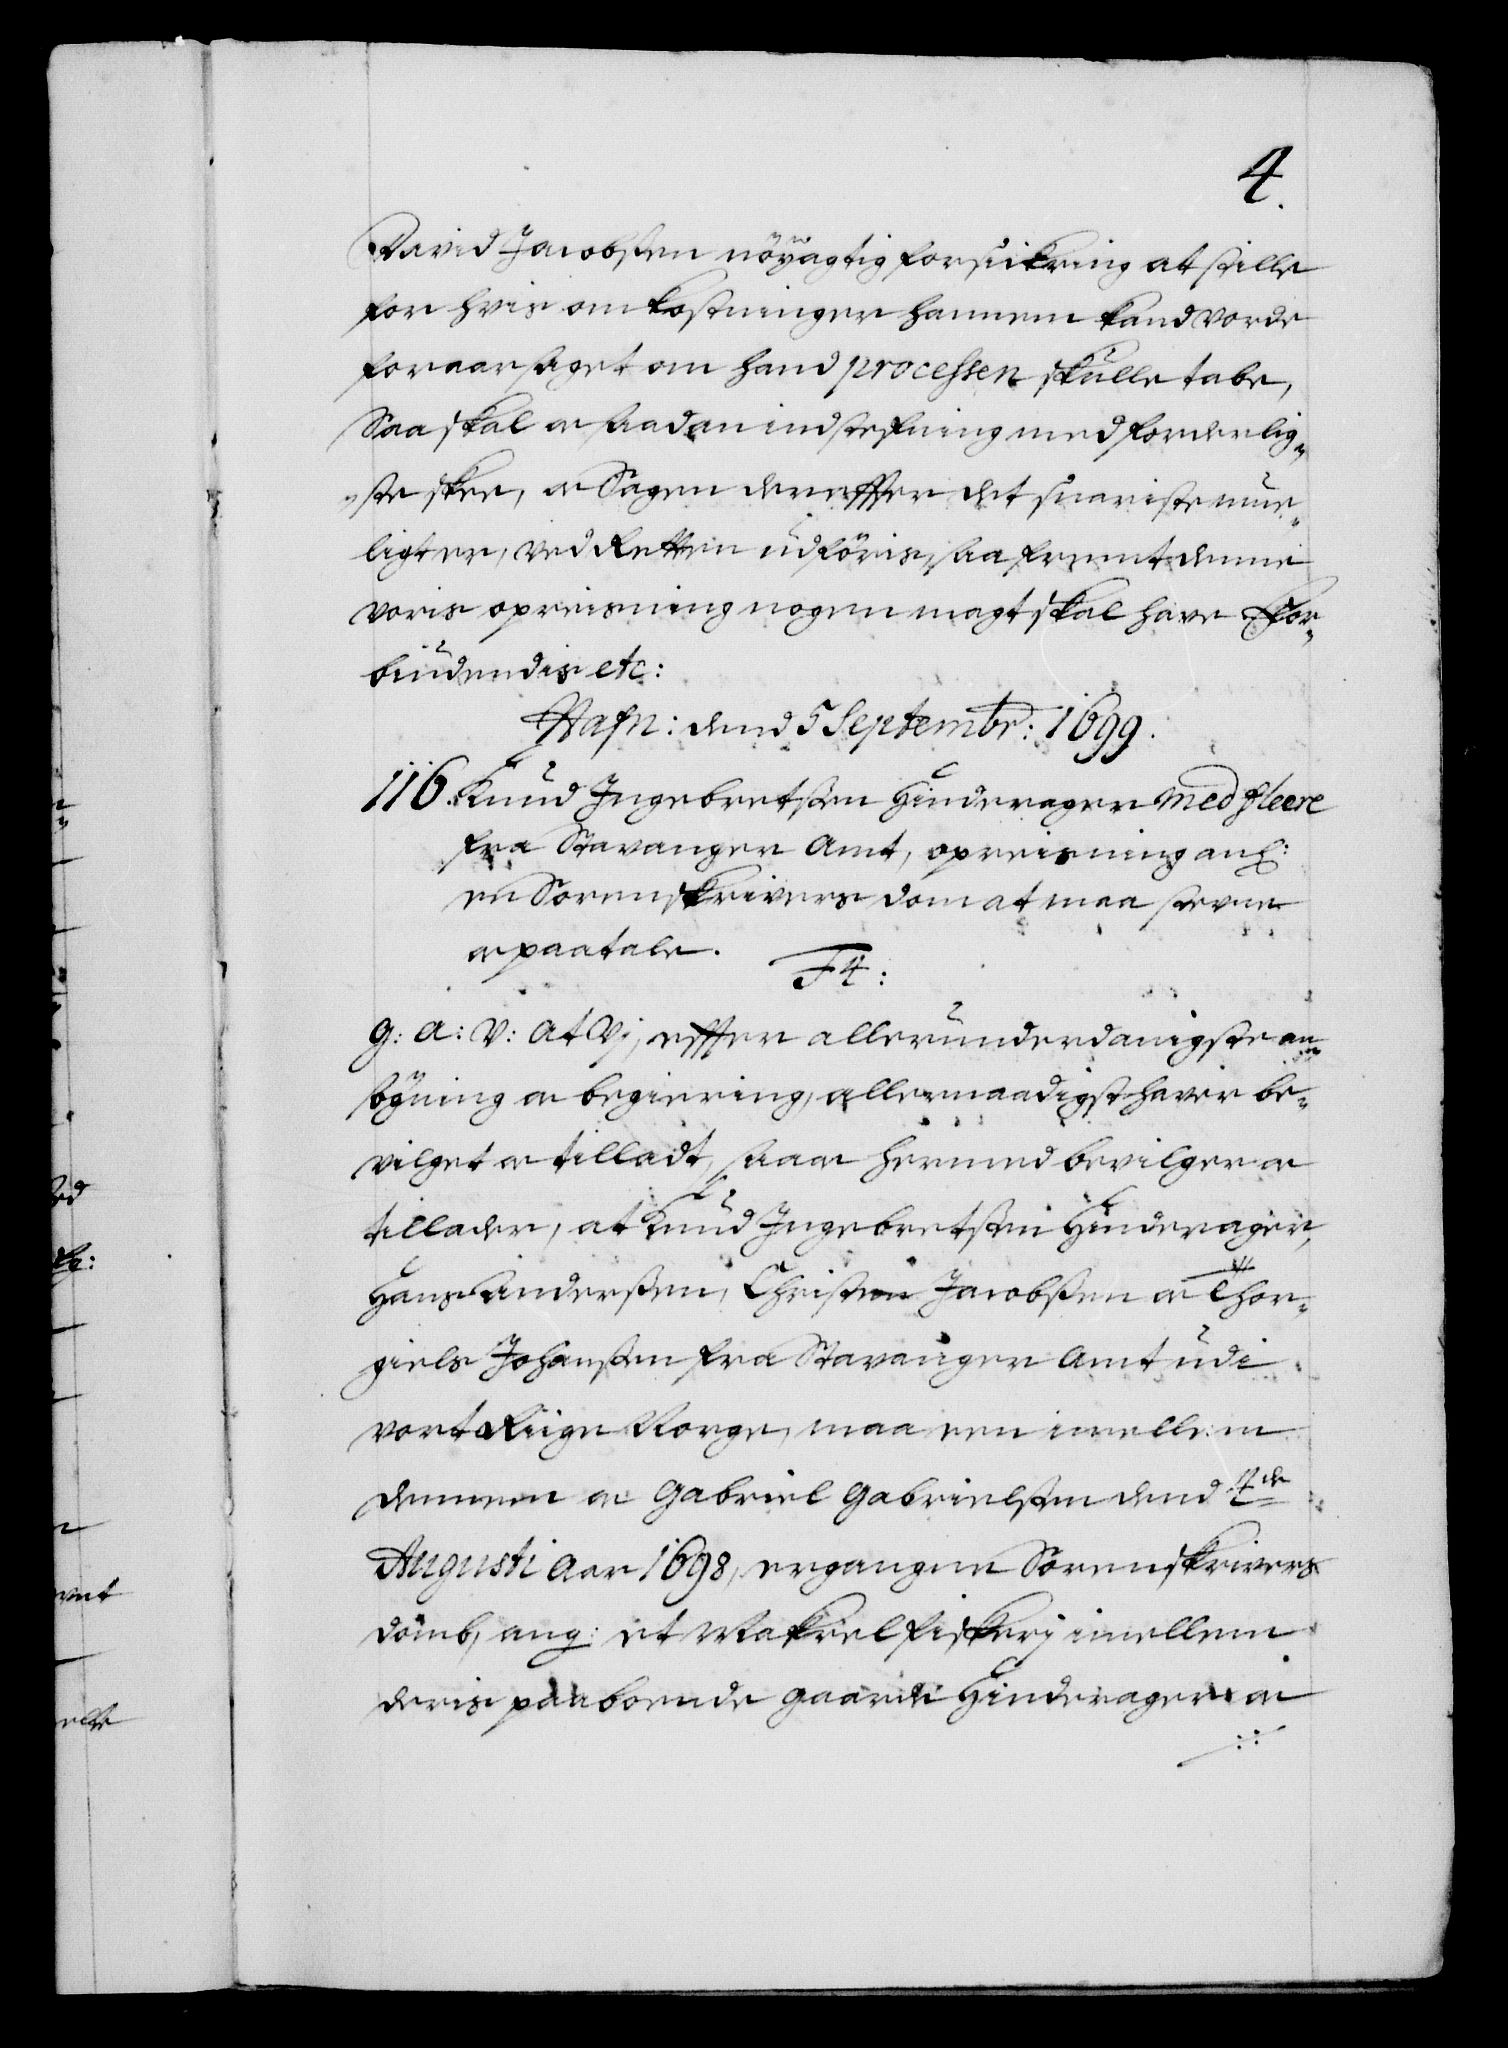 4.
David Jacobsen nöyagtig forsikring at stille
for hvis omkostninger hannem kand vorde
foraarsaget om hand processen skulle tabe,
Saa skal oc saadan indstefning med forderlig-
ste skee, oc Sagen derefter det snariste mue-
ligt er, ved Retten udföris, saa fremt denne
voris opreisning nogen magt skal have For-
biudendis etc:
Hafn: dend 5 Septembr: 1699.
116. Knud Ingebretsen Hinderager med fleere
fra Stavanger Amt, opreisning anl:
en Sorenskrivers dom at maa stevne
oc paatale.
F4:
G: A: V: At Vj, efter allerunderdanigste an-
sögning oc begiering, allernaadigst haver be-
vilget oc tilladt, saa oc hermed bevilger oc
tillader, at Knud Ingebretsen Hinderager,
Hans Andersen, Christen Jacobsen oc Thor-
giels Johansen fra Stavanger Amt udi
vort Riige Norge, maa een imellem
dennem oc Gabriel Gabrielsen dend 4de
Augusti Aar 1698, ergangne Sorenskrivers
domb, ang: et Makrel fiskerj imellem
deris paaboende gaarde Hinderager oc